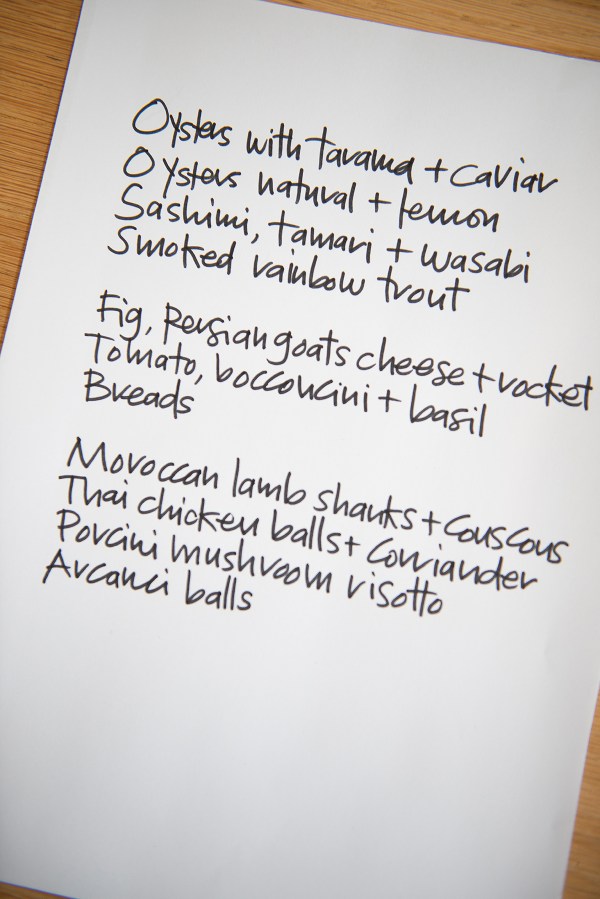 Oysters with tarama + caviar
Oysters natural + lemon
Sashimi, tamari + wasabi
Smoked rainbow trout
Fig, persian goats cheese + rocket
Tomato, bocconcini + basil
Breads
Moroccan lamb shanks + couscous
Thai chicken balls + corriander
Porcini mushroom risotto
Arcanci balls